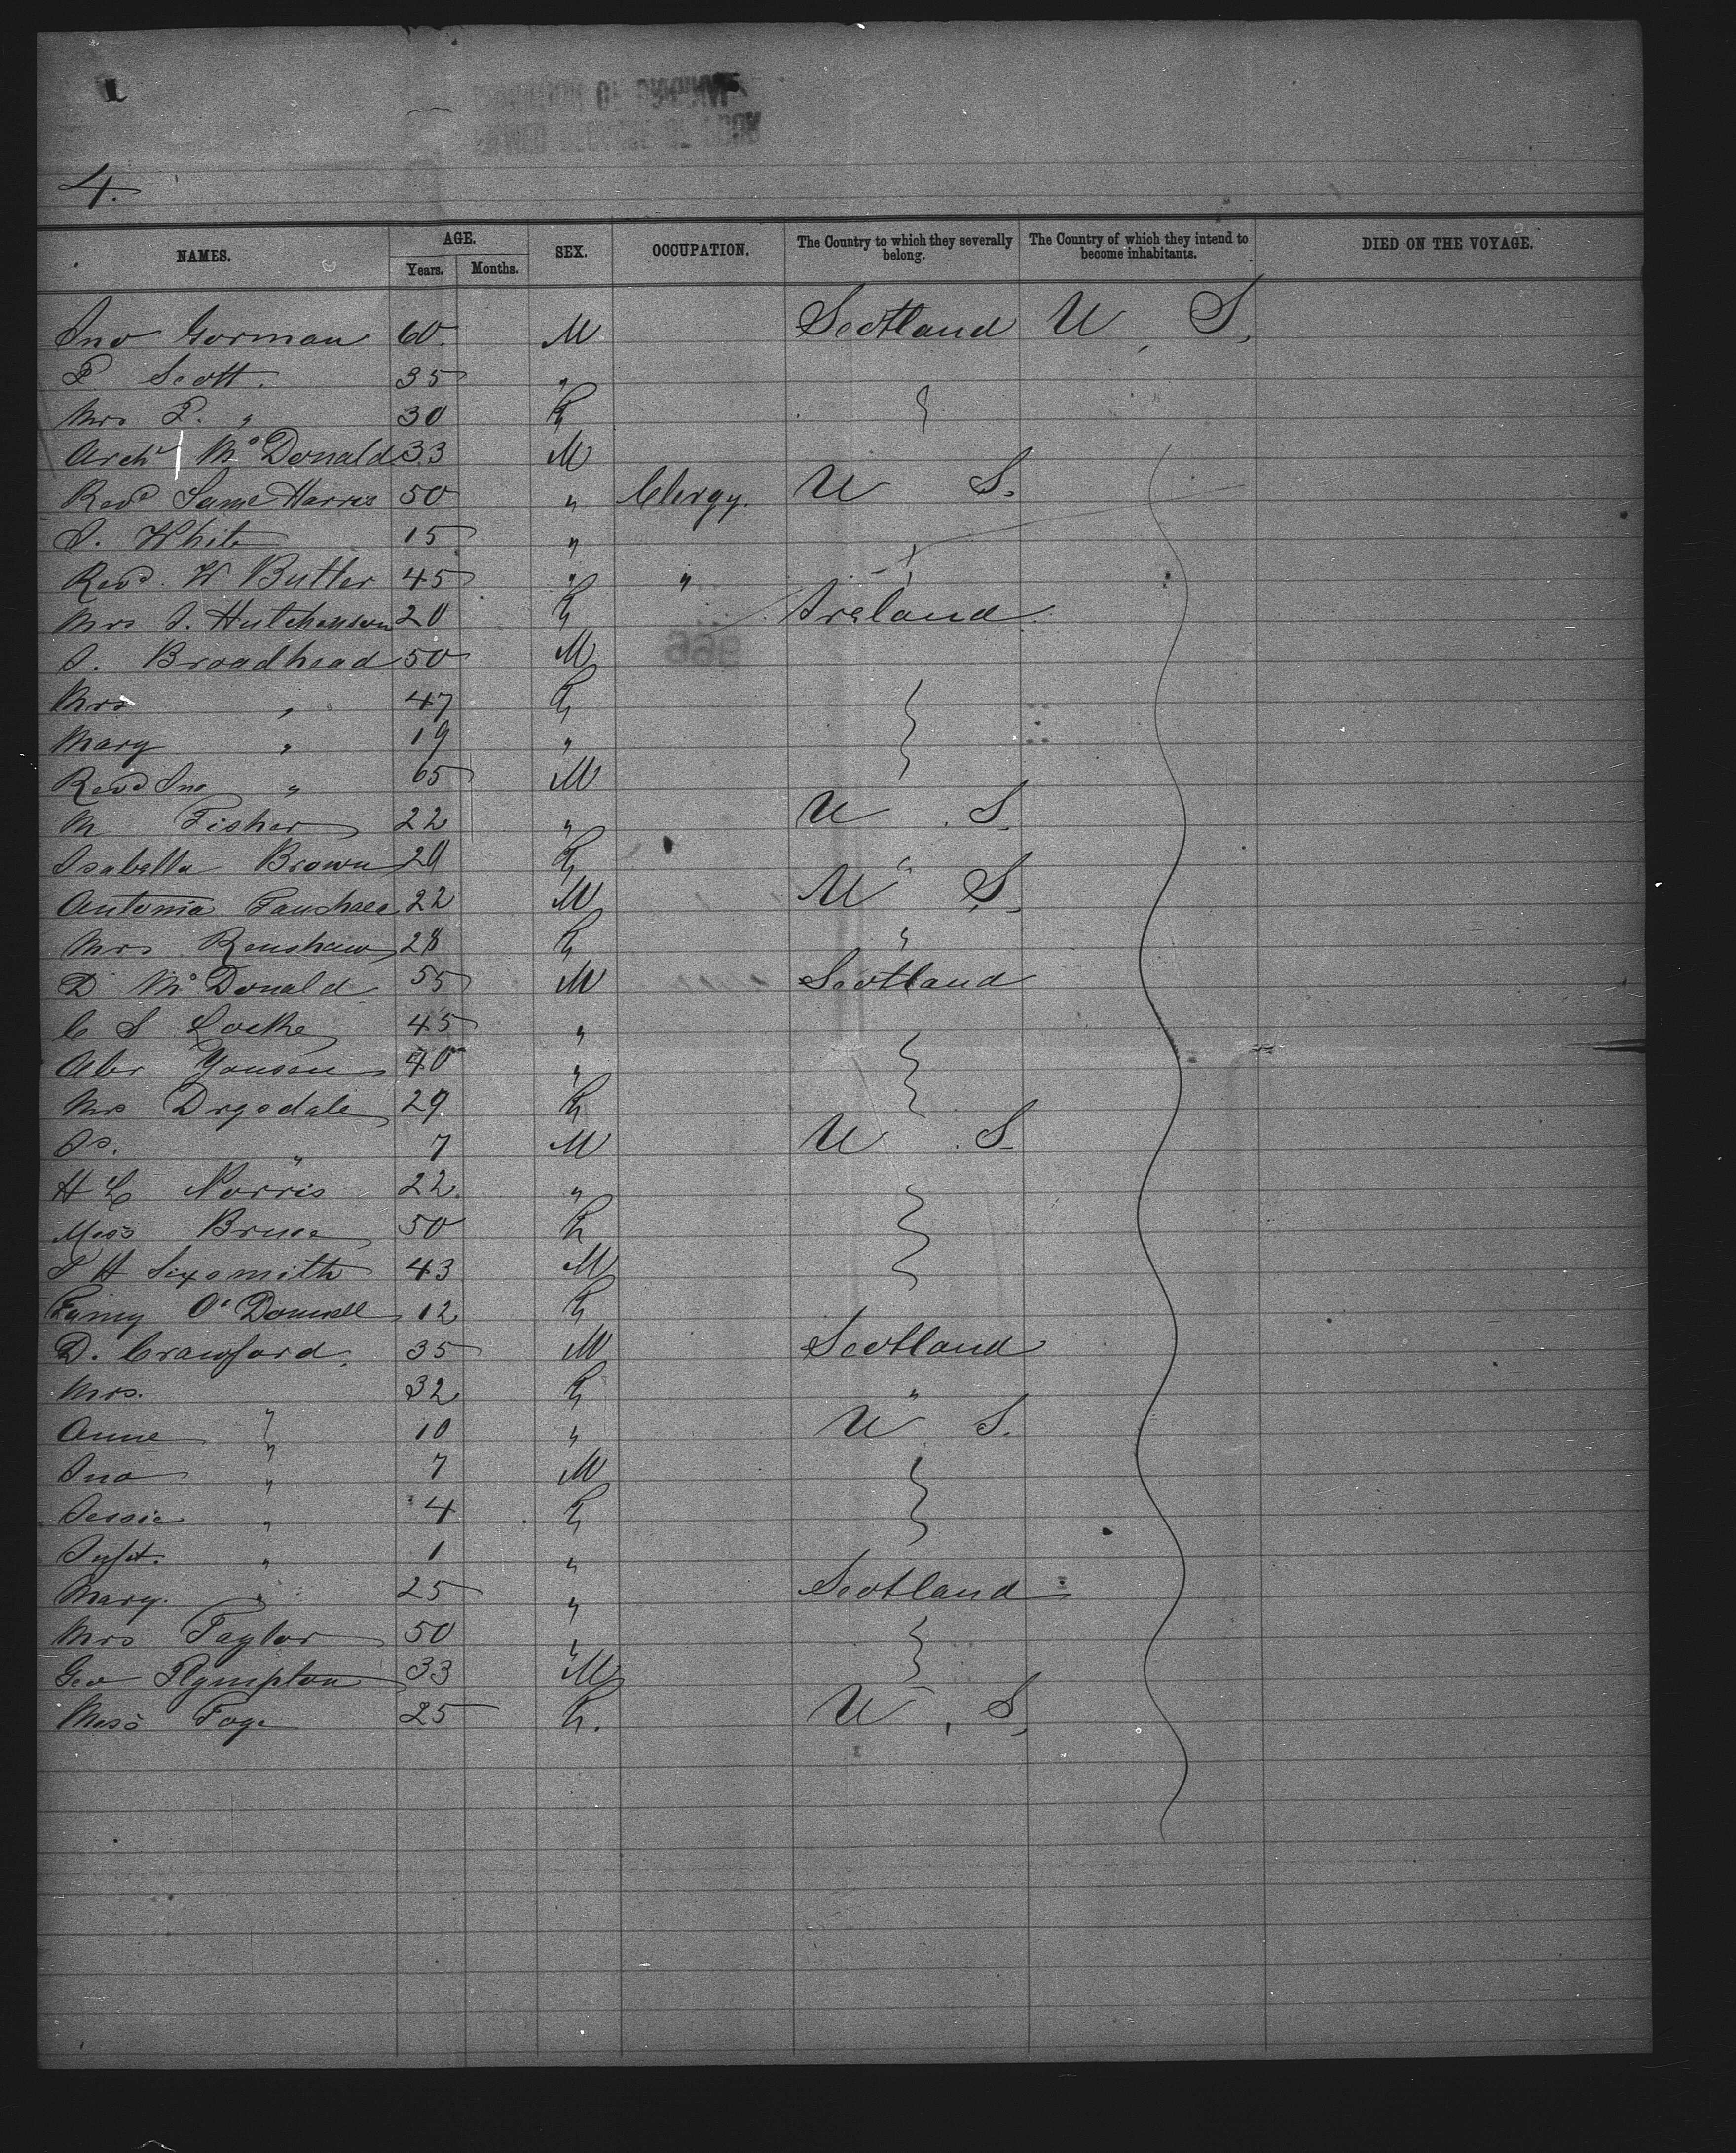 4.
NAMES. AGE. Years. Months. SEX. OCCUPATION. The Country to which they severally belong. The Country of which they intend to become inhabitants. DIED ON THE VOYAGE.
Jno Gorman 60. M Scotland U S,
P Scott. 35 "
Mrs P. " 30 F
Archd McDonald 33 M
Revd Harris 50 " Clergy. U S.
J. White 15 "
Revd. W Butler 45 " "
Mrs J. Hutchenson 20 F Ireland
J. Broadhead 50 M
Mrs " 47 F
Mary " 19 "
Revd Jno " 65 M
M Fisher 22 " U S.
Isabella Brown 20 F "
Antonia 22 M U S.
Mrs Renshaw 28 F "
D McDonald 55 M Scotland
C S Locke 45 "
Alex 40 "
Mrs Drysdale 29 F
Js. " 7 M U S.
H L Norris 22. "
Miss Bruce 50 F
T H Sixsmith 43 M
Fanny O'Donnell 12 F
D. Crawford. 35 M Scotland
Mrs. " 32 F "
Anne " 10 " U S.
Jno " 7 M
Jessie " 4 F
Inft. " 1 "
Mary. " 25 " Scotland
Mrs Taylor 50 "
Geo Plympton 33 M
Miss 25 F. U S,